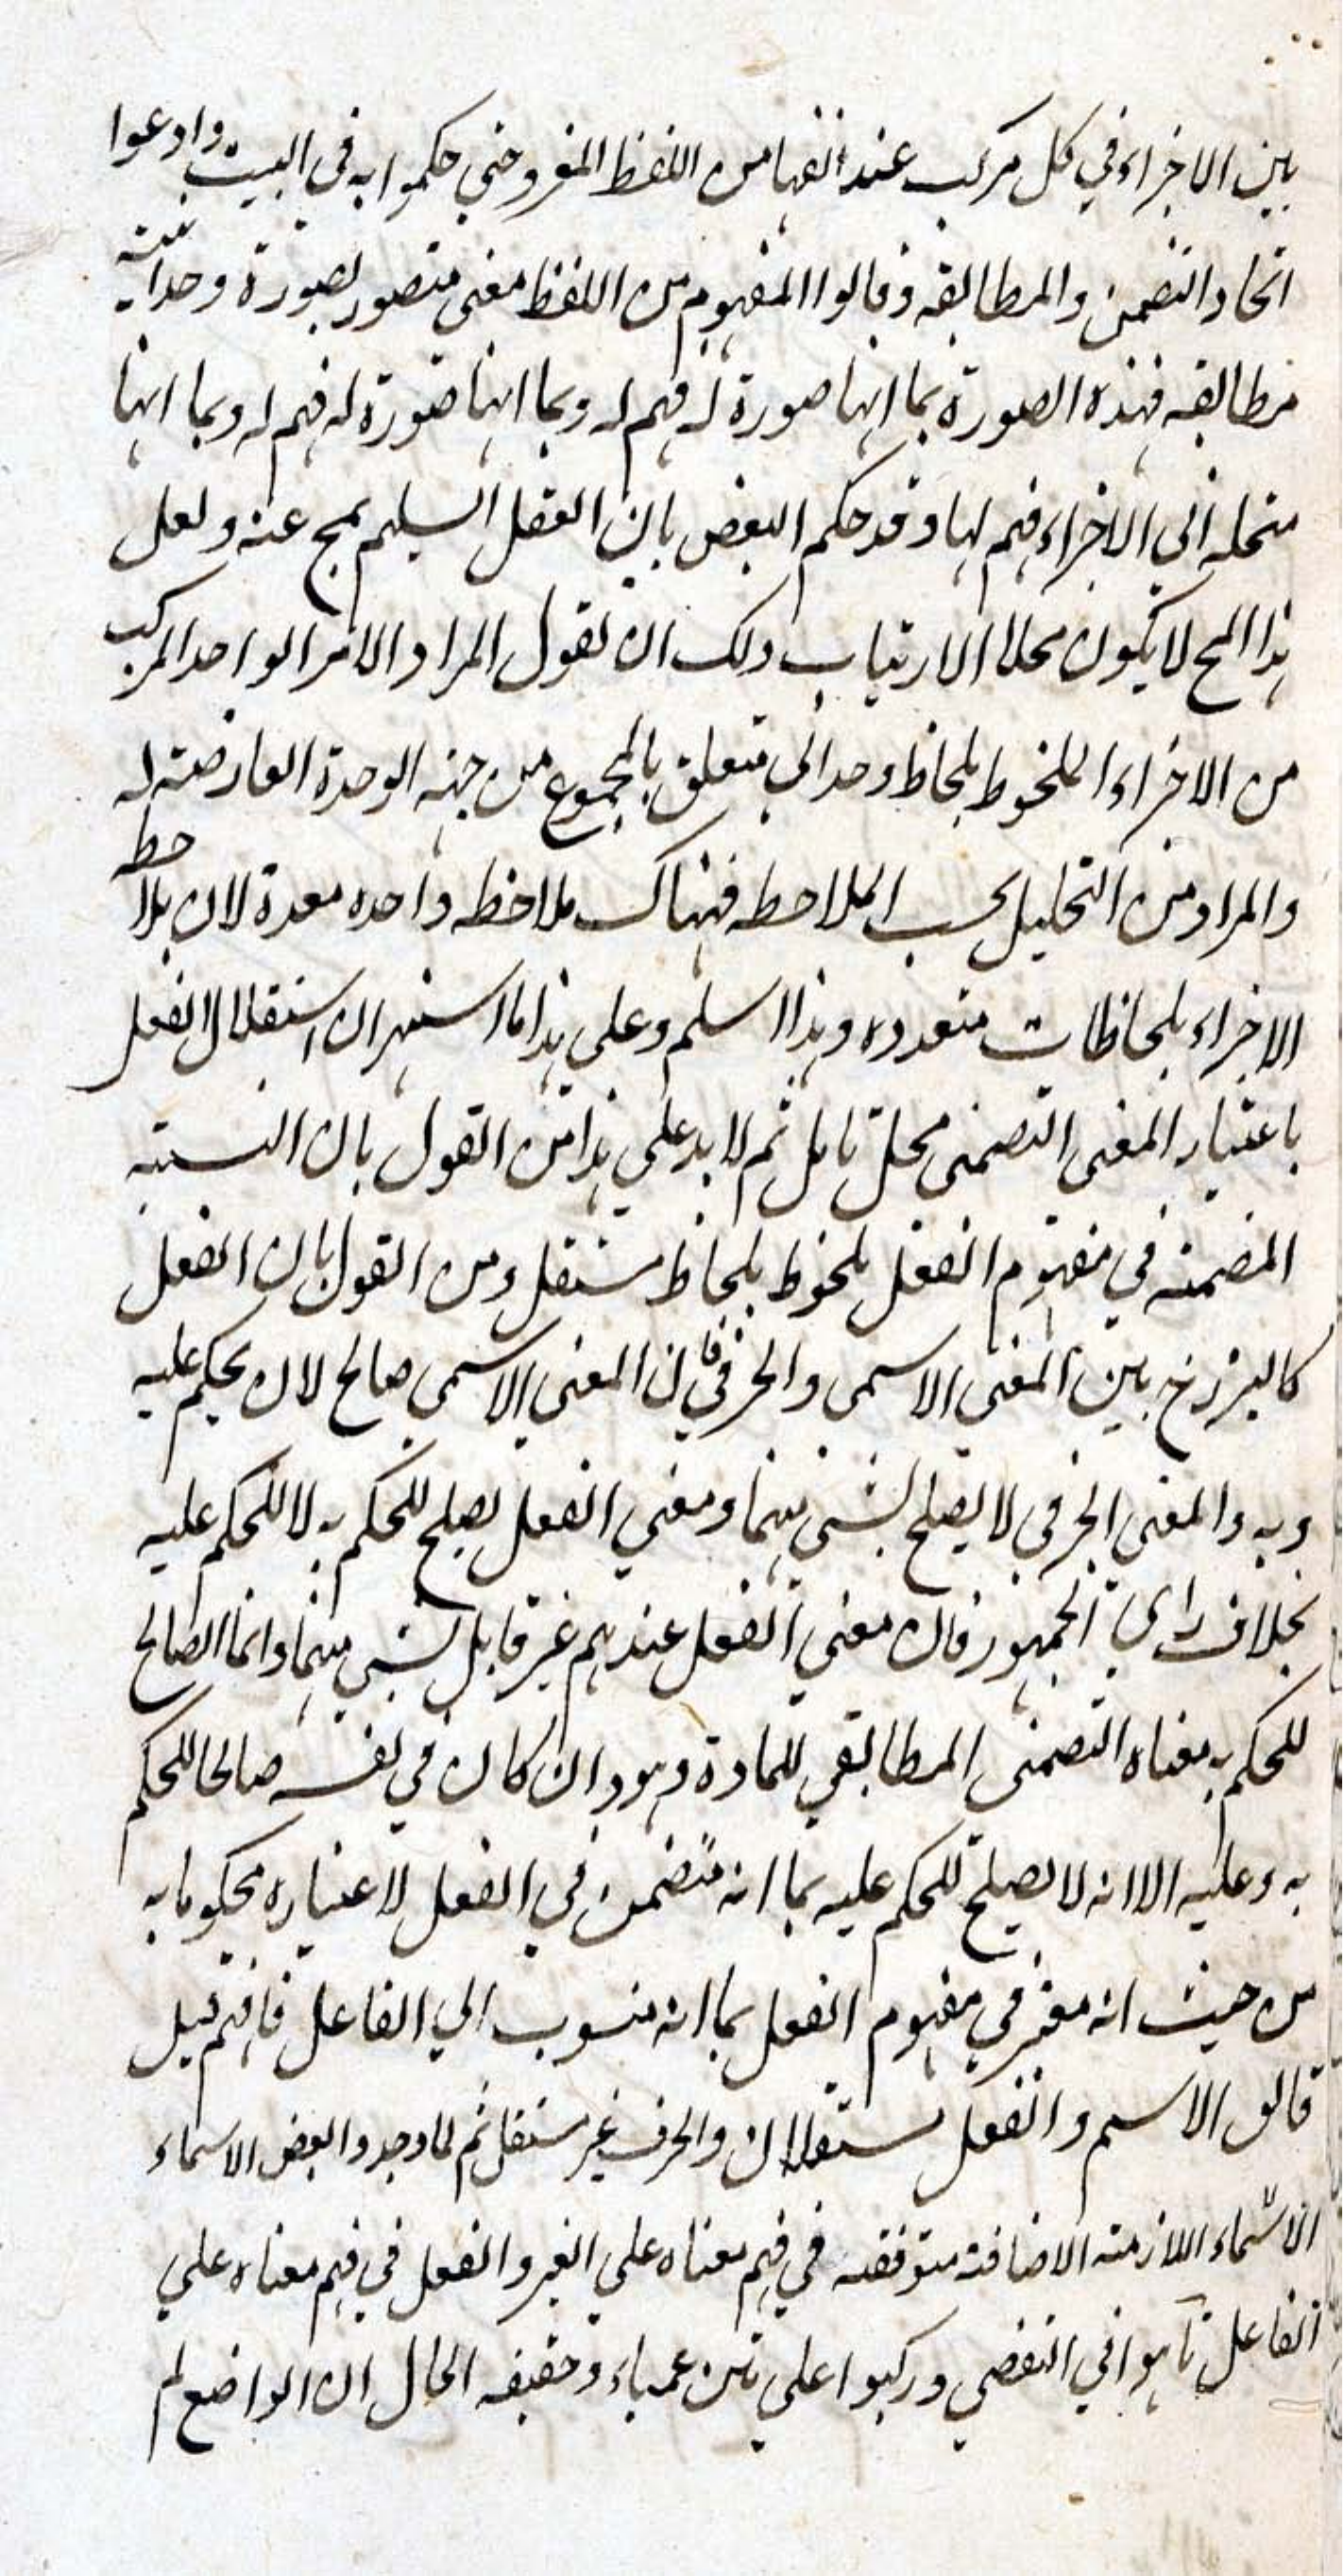 بين الاجزاء في كل مركب عند انفهامه من اللفظ المفرد حتي حكموا به في البيت وادعوا
اتحاد التضمن والمطابقه وقالوا المفهوم من اللفظ معنى متصور بصورة وحدانية
مطابقه فهذه الصورة بما انها صورة له فهم له وبما انها صورة له فهم له وبما انها
منحله الي الاجزاء فهم لها وقد حكم البعض بان العقل السليم يمج عنه ولعل
هذا المج لا يكون محلا الارتياب ولك ان تقول المراد الامر الواحد المركب
من الاجزاء الملحوظ بلحاظ وحداني متعلق بالمجموع من جهه الوحدة العارضة له
والمراد من التحليل بحسب الملاحظه فهناك ملاحظه واحده معدة لان يلاحظ
الاجزاء بلحاظات متعدده وهذا اسلم وعلي هذا ما اشتهر ان استقلال الفعل
باعتبار المعنى التضمنى محل تامل ثم لا بد علي هذا من القول بان النسبة
المضمنه في مفهوم الفعل ملحوظ بلحاظ مستقل ومن القول بان الفعل
كالبرزخ بين المعنى الاسمى والحرفي فان المعنى الاسمى صالح لان يحكم عليه
وبه والمعنى الحرفي لا يصلح لشئ منهما ومعني الفعل يصلح للحكم به لا للحكم عليه
بخلاف راي الجمهور فان معني الفعل عندهم غير قابل لشئ منهما وانما الصالح
للحكم به معناه التضمنى المطابقي للمادة وهو وان كان في نفسه صالحا للحكم
به وعليه الا انه لا يصلح للحكم عليه بما انه متضمن في الفعل لاعتباره محكوما به
من حيث انه معتبر في مفهوم الفعل بما انه منسوب الي الفاعل فافهم قيل
قالوا الاسم والفعل مستقلان والحرف غير مستقل ثم لما وجدوا بعض الاسماء
الاسماء اللازمة الاضافة متوقفه في فهم معناه علي الغير والفعل في فهم معناه علي
الفاعل تاهوا في التفصي وركبوا علي متن عمياء وحقيقه الحال ان الواضع لم